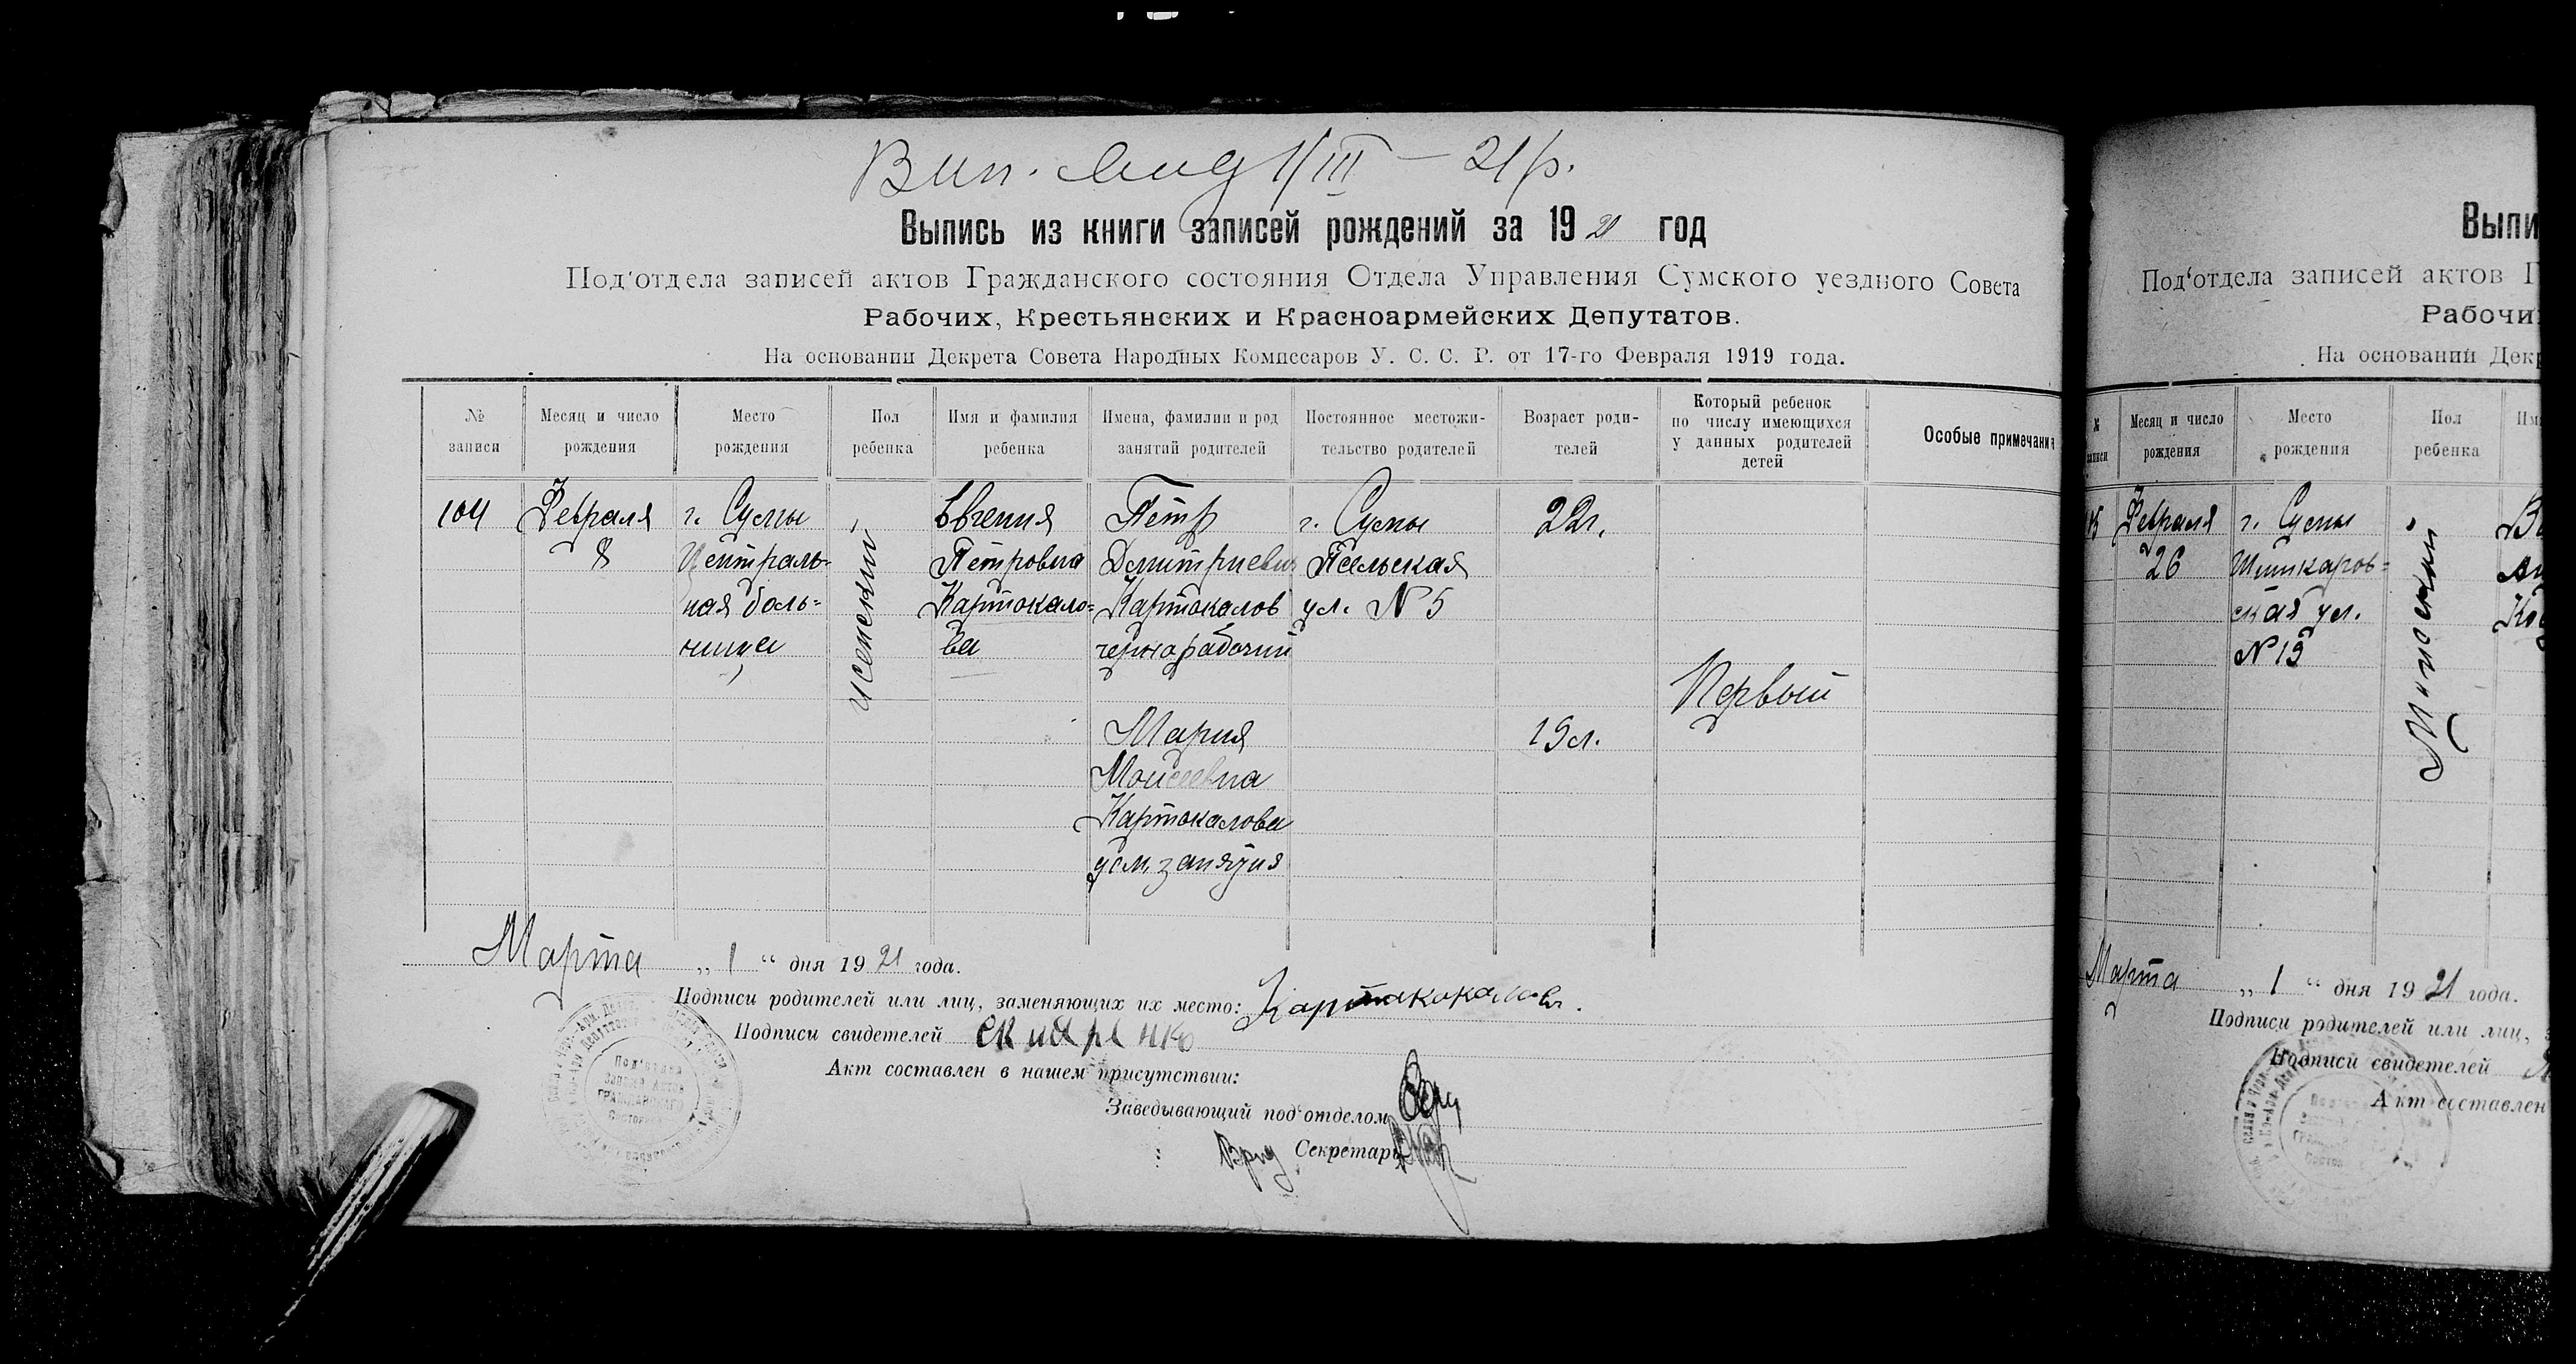 Вип. 1/III – 21 р.
Выпись из книги записей рождений за 1921 год
Под'отдела записей актов Гражданского состояния Отдела Управления Сумского уездного Совета
Рабочих, Крестьянских и Красноармейских Депутатов.
На основании Декрета Совета Народных Комиссаров У. С. С. Р. от 17-го Февраля 1919 года.
№ записи
Месяц и число рождения
Место рождения
Пол ребенка
Имя и фамилия ребенка
Имена, фамилии и род занятий родителей
Постоянное местожи-тельство родителей
Возраст роди-телей
Который ребенок по числу имеющихся у данных родителей детей
Особые примечания
104
Февраля
8
г. Сумы
Централь-
ная боль=
ница
женский
Евгения
Петровна
Картокало=
ва
Петр
Дмитриевич
Картокалов
чернорабочий
Мария
Моисеевна
Картокалова
дом. занятия
г. Сумы
Псельская
ул. № 5
22 г.
19 л.
Первый
Марта „ 1 “ дня 1921 года.
Подписи родителей или лиц, заменяющих их место:
Подписи свидетелей
Акт составлен в нашем присутствии:
Заведывающий под'отделом
Врид Секретарь
Под'отдел
Записи Актов
ГРАЖДАНСКОГО
Состояния
Выпи
Под'отдела записей актов Г
Рабочи
На основании Дек
№ записи
Месяц и число рождения
Место рождения
Пол ребенка
Им
Февраля
26
г. Сумы
ская ул.
№ 19
Мужской
Марта „ 1 “ дня 1921 года.
Подписи родителей или лиц,
Подписи свидетелей
Акт составлен